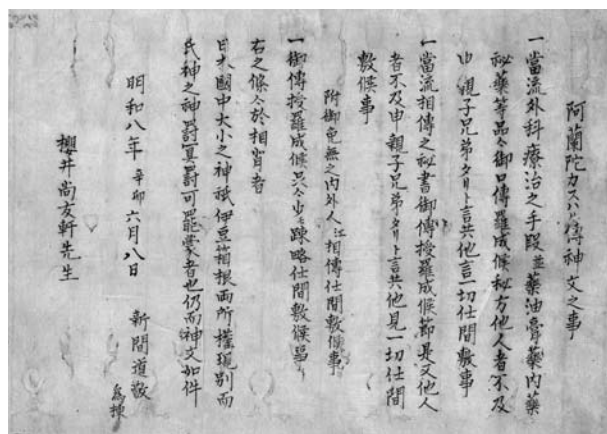 阿蘭陀カスハル傳神文之事
一當流外科療治之手段並藥油膏藥内藥
秘藥等品々御口傳羅成候秘方他人者不及
申親子兄弟タリト言共他言一切仕間敷事
一當流相傳之秘書御傳授羅成候節是又他人
者不及申親子兄弟タリト言共他見一切仕間
敷候事
附御免無之内外人江相傳仕間敷候事
一御傳授羅成候只今少モ踈略仕間敷候事
右之條々於相背者
日本國中大小之神祇伊豆箱根両所權現別而
氏神之神罸冥罸可罷蒙者也仍而神文如件
明和八年辛卯六月八日
新間道敬
為棟
櫻井尚友軒先生